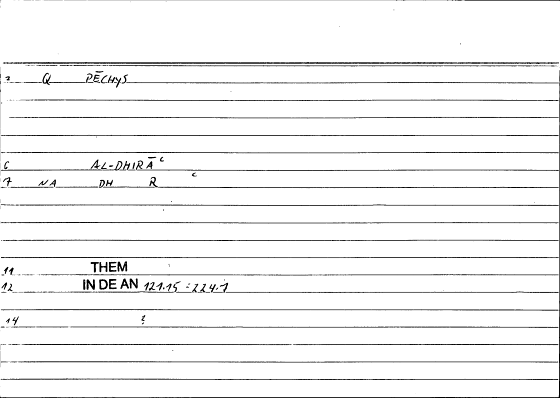 2 Q PĒCHYS
6 AL-DHIRĀ ͨ
7 NA DH R ͨ
11 THEM
12 IN DE AN 121.15 = 224.1
14 ?